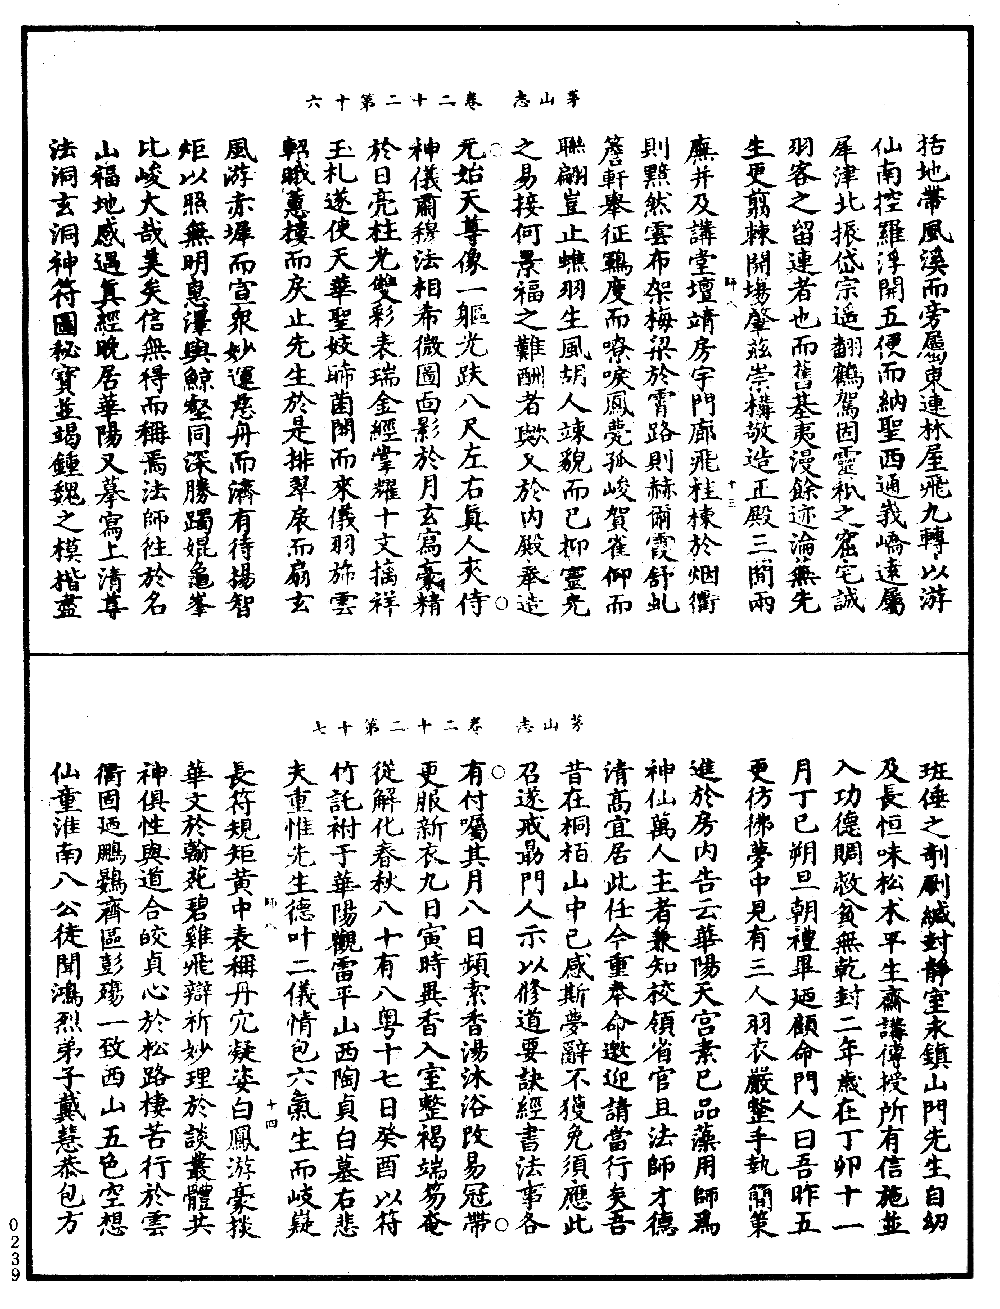 茅山志　卷二十二第十六
括地帶風溪而旁屬東連林屋飛九轉以游
仙南控羅浮開五便而納聖西通峩嶠遠屬
犀津北振岱宗遥翻鶴駕因靈衹之窟宅誠
羽客之留連者也而舊基夷漫餘迹淪無先
生更翦棘開場肇茲崇構敬造正殿三間兩
師八　十三
廡并及講堂壇靖房宇門廊飛桂棟於烟衢
則黯然雲布架梅梁於霄路則赫爾霞舒虬
簷軒舉征鷄度而嘹唳鳳甍孤峻賀雀仰而
聯翩豈止蟭羽生風胡人竦貌而已抑靈光
之易接何景福之難酬者歟又於内殿奉造
元始天尊像一軀光趺八尺左右真人夾侍
神儀肅穆法相希微圖面影於月玄寫豪精
於日亮柱光雙彩表瑞金經掌耀十文摛祥
玉札遂使天華聖妓睇菌閣而來儀羽旆雲
軿瞰蕙樓而戾止先生於是排翠扆而扇玄
風游赤墀而宣衆妙運慈舟而濟有待揚智
炬以照無明惠澤與鯨壑同深勝躅焜龜峯
比峻大哉美矣信無得而稱焉法師徃於名
山福地感遇真經晚居華陽又摹寫上清尊
法洞玄洞神符圖秘寶並竭鍾魏之模揩盡
茅山志　卷二十二第十七
班倕之剞劂緘封静室永鎮山門先生自幼
及長恒味松朮平生齋講傳授所有信施並
入功德賙救貧無乾封二年歲在丁卯十一
月丁巳朔旦朝禮畢廼顧命門人曰吾昨五
更彷彿夢中見有三人羽衣嚴整手執簡策
進於房内告云華陽天宫素已品藻用師爲
神仙萬人主者兼知校領省官且法師才德
清高宜居此任今重奉命邀迎請當行矣吾
昔在桐栢山中已感斯夢辭不獲免須應此
召遂戒勗門人示以修道要訣經書法事各
有付囑其月八日頻索香湯沐浴改易冠帶
更服新衣九日寅時異香入室整褐端笏奄
從解化春秋八十有八粤十七日癸酉以符
竹託祔于華陽觀雷平山西陶貞白墓右悲
夫重惟先生德叶二儀情包六氣生而岐嶷
師八　十四
長符規矩黄中表稱丹穴凝姿白鳳游豪掞
華文於翰苑碧雞飛辯祈妙理於談叢體共
神俱性與道合皎貞心於松路棲苦行於雲
衢固廼鵬鷃齊區彭殤一致西山五色空想
仙童淮南八公徒聞鴻烈弟子戴慧恭包方
0239